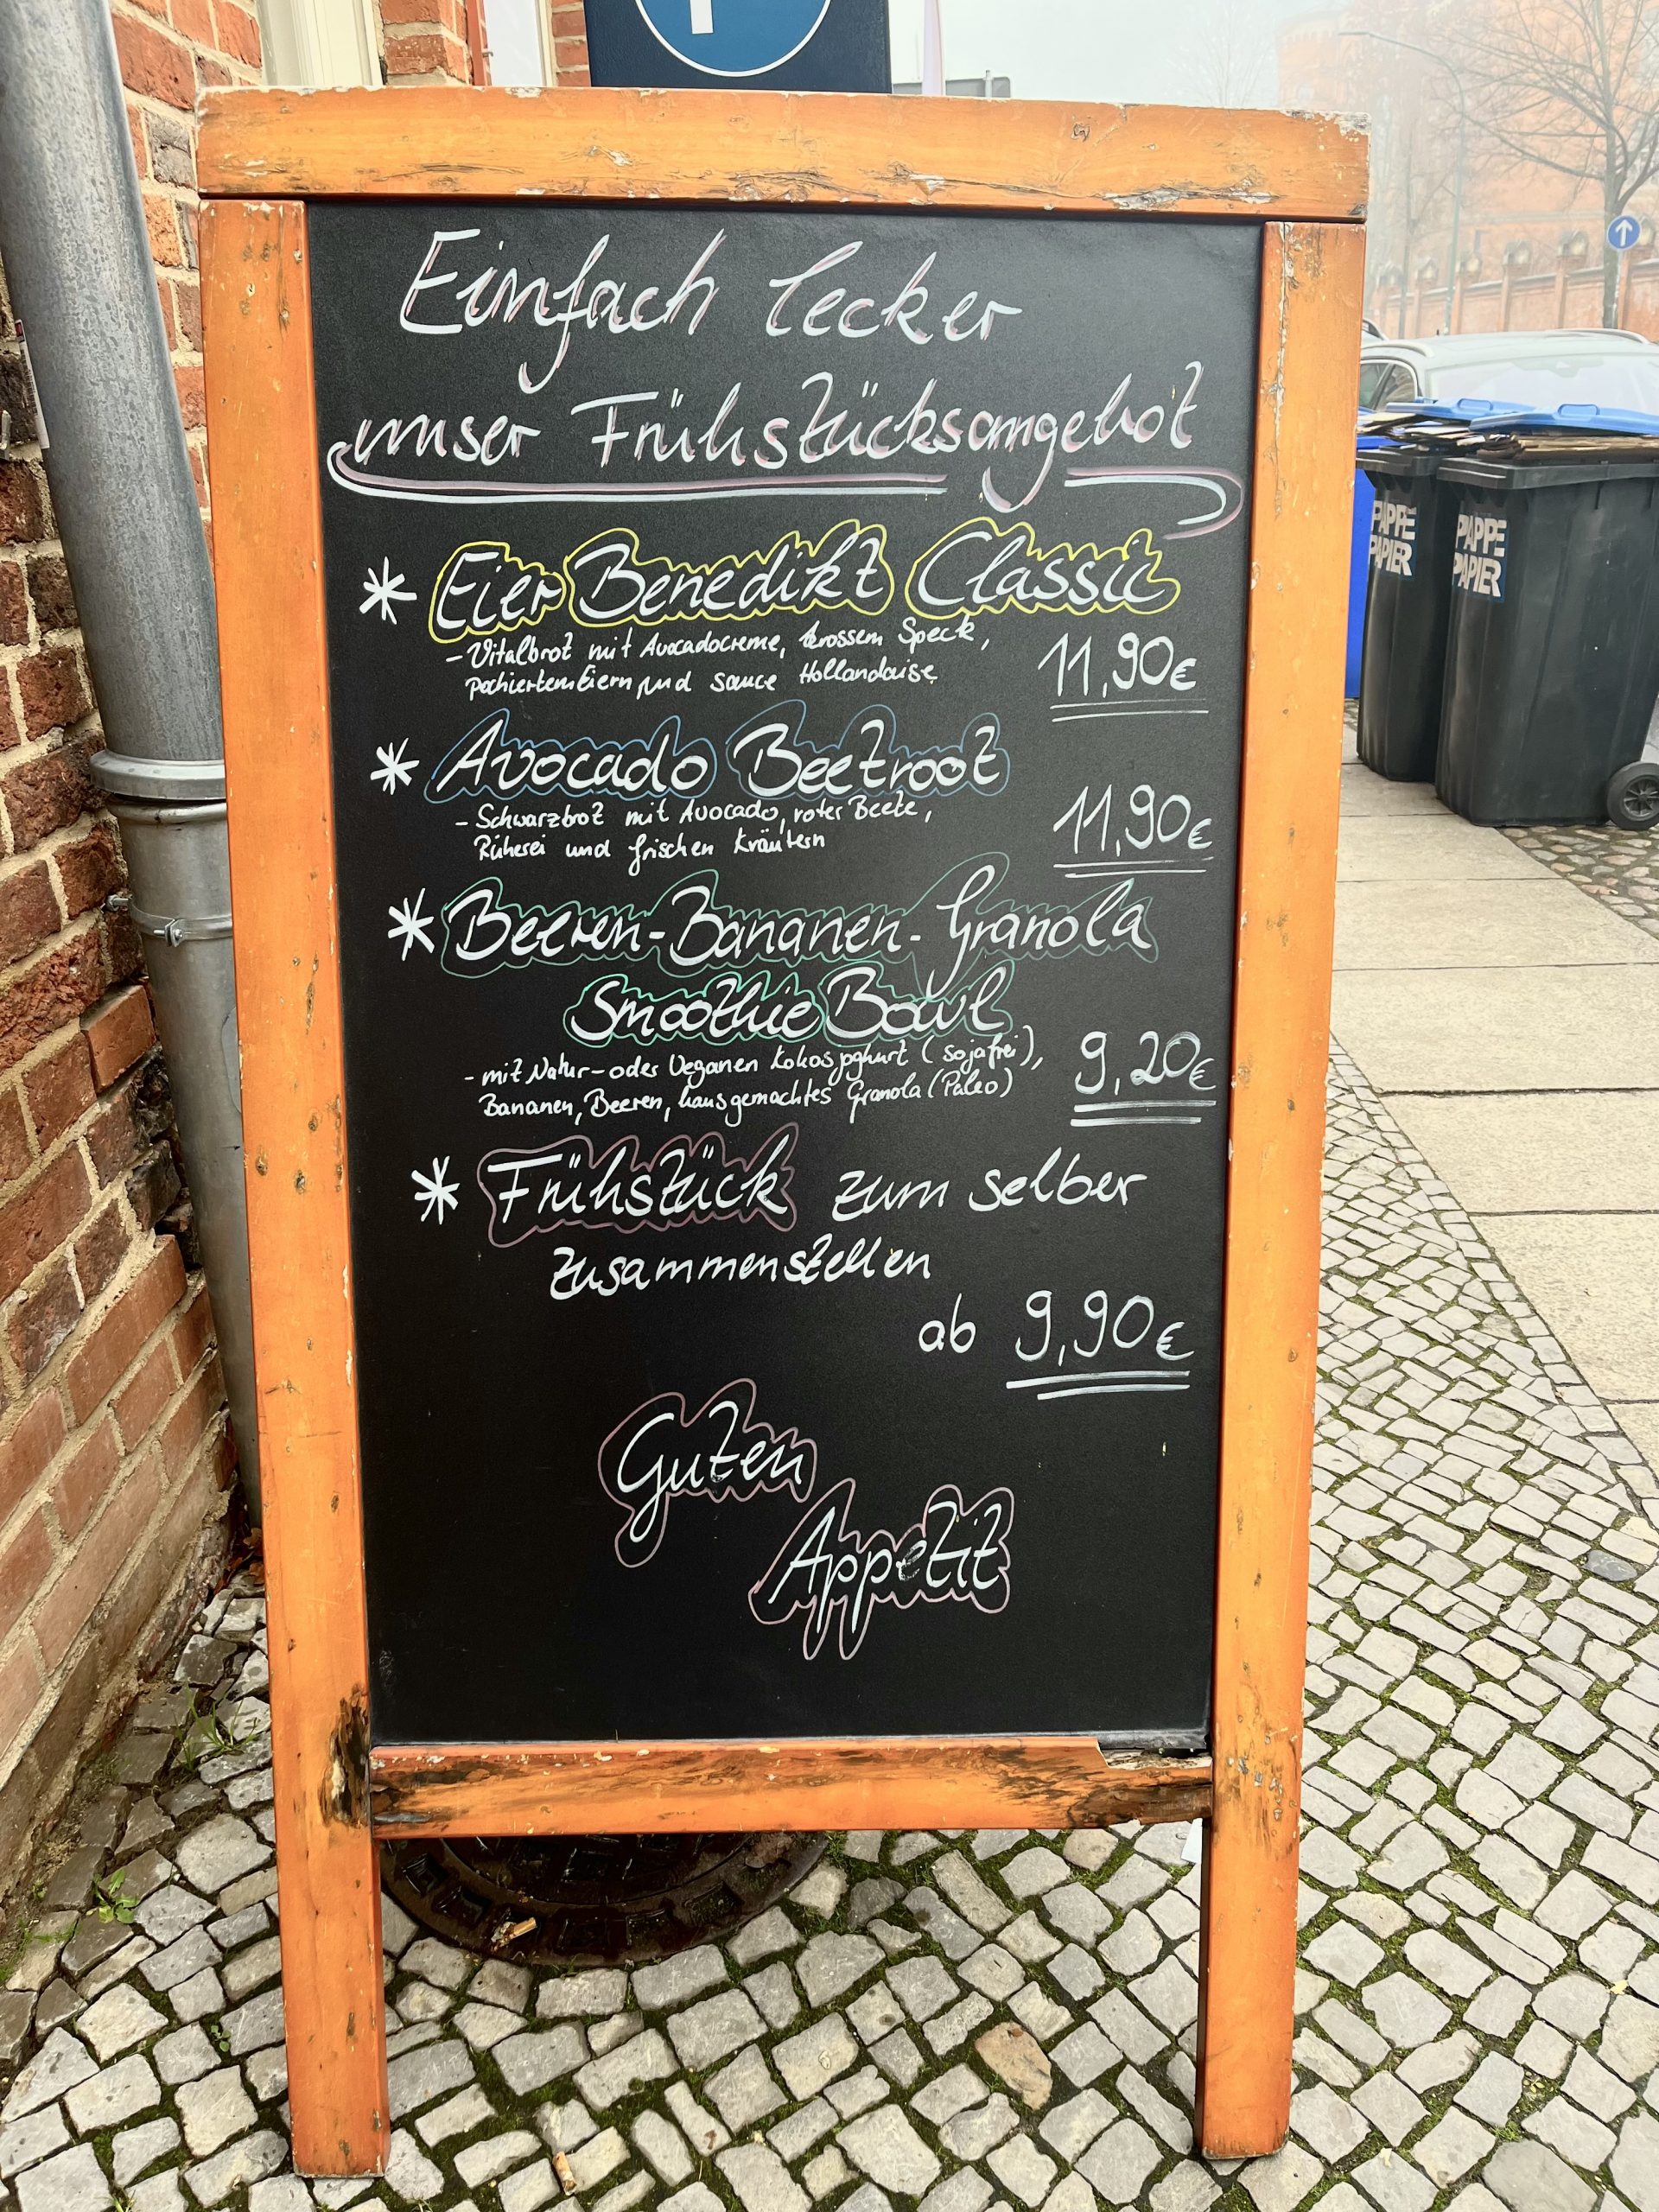 Einfach lecker
unser Frühstücksangebot
* Eier Benedikt Classic
- Vitalbrot mit Avocadocreme, krossem Speck,
pochiertem Eiern und sauce Hollandaise
11,90€
* Avocado Beetroot
- Schwarzbrot mit Avocado, roter Beete,
Rüherei und frischen Kräutern
11,90€
* Beeren-Bananen-Granola
Smoothie Bowl
- mit Natur- oder Veganen Kokosjoghurt (sojafrei),
Bananen, Beeren, hausgemachtes Granola (Paleo)
9,20€
* Frühstück zum selber
zusammenstellen
ab 9,90€
Guten
Appetit
PAPPE
PAPIER
PAPPE
PAPIER